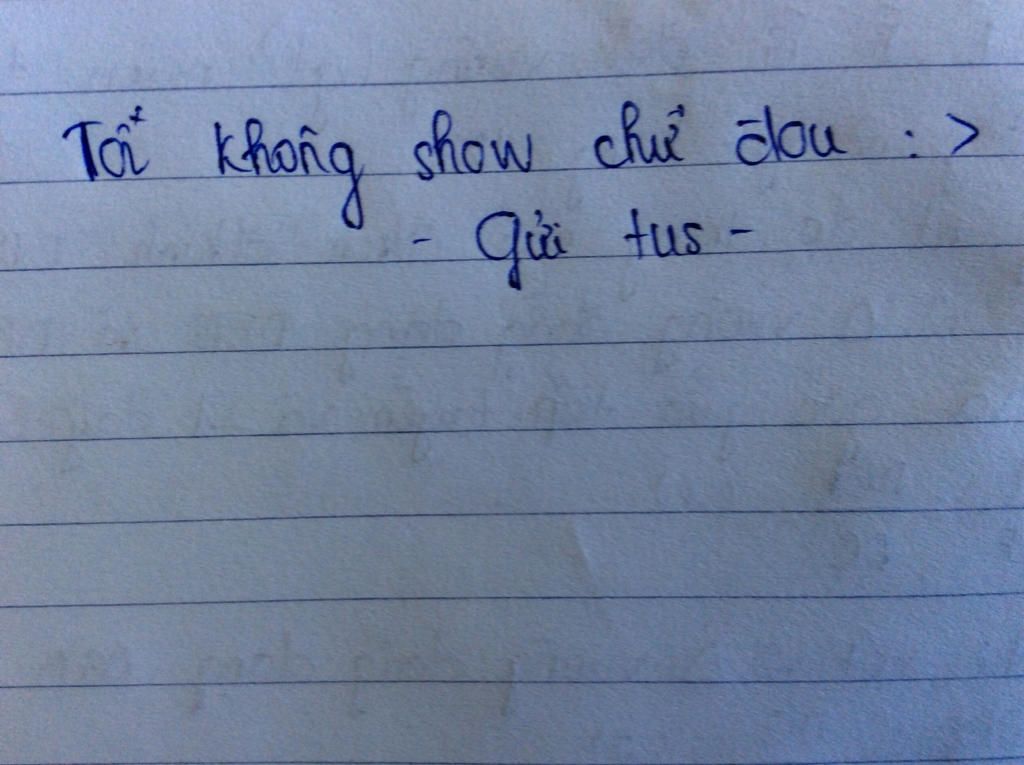 Tôi không show chữ đou :>
- Gửi tus -